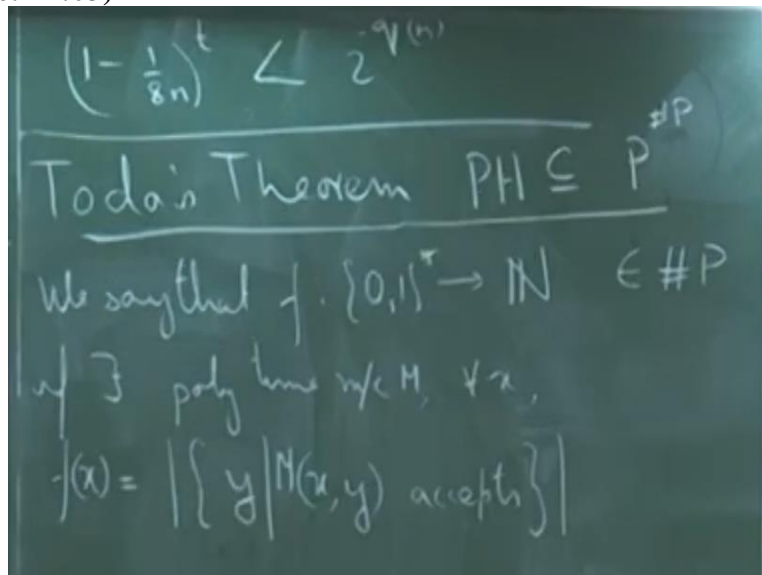 (1 - 1/8n)^t < 2^-q(n)
Toda's Theorem PH ⊆ P^#P
We say that f : {0,1}* → ℕ ∈ #P
if ∃ poly time m/c M, ∀ x,
f(x) = |{ y | M(x,y) accepts }|